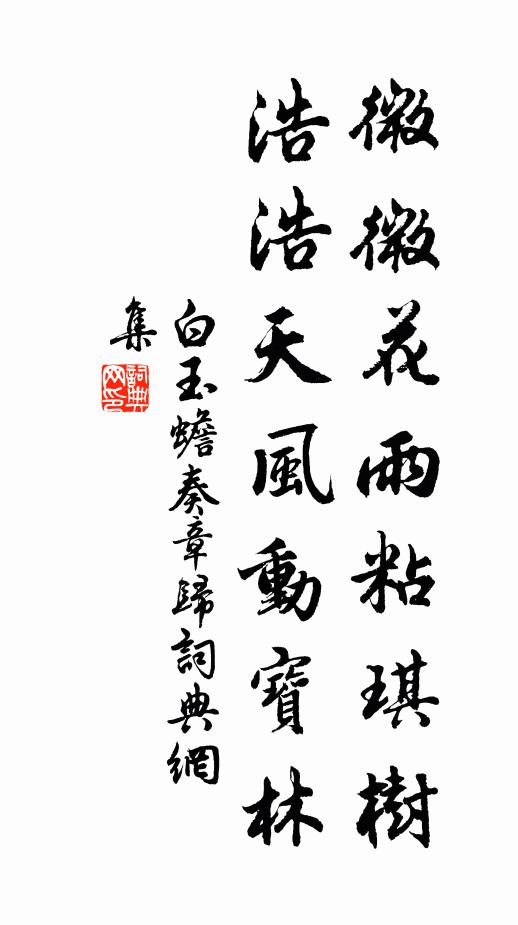 微微花雨粘琪樹
浩浩天風動寶林
白玉蟾奏章歸詞典網
集
詞典
网印